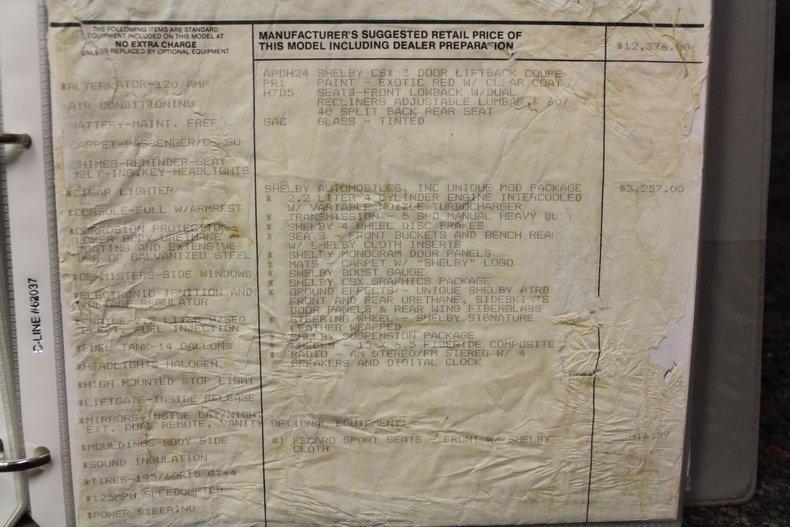 THE FOLLOWING ITEMS ARE STANDARD
EQUIPMENT INCLUDED ON THIS MODEL AT
NO EXTRA CHARGE
UNLESS REPLACED BY OPTIONAL EQUIPMENT
*ALTERNATOR-120 AMP
*AIR CONDITIONING
BATTERY-MAINT. FREE
CARPET-PASSENGER/CARGO
CHIMES-REMINDER-SEAT
BELT-INS.KEY-HEADLIGHTS
*CIGAR LIGHTER
*CONSOLE-FULL W/ARMREST
*CORROSION PROTECTION
LOWER BODY URETHANE
COATING AND EXTENSIVE
USE OF GALVANIZED STEEL
*DEMISTERS-SIDE WINDOWS
*ELECTRONIC IGNITION AND
VOLTAGE REGULATOR
ELECT. FUEL INJECTION
*FUEL TANK-14 GALLONS
*HEADLIGHTS HALOGEN
*HIGH MOUNTED STOP LIGHT
*LIFTGATE-INSIDE RELEASE
*MIRRORS-INSIDE DAY/NIGHT
EXT. DUAL REMOTE, VANITY
*MOULDINGS-BODY SIDE
*SOUND INSULATION
*TIRES-195/60R15
*125MPH SPEEDOMETER
*POWER STEERING
MANUFACTURER'S SUGGESTED RETAIL PRICE OF
THIS MODEL INCLUDING DEALER PREPARATION
$12,376.00
APDH24 SHELBY CSX 3 DOOR LIFTBACK COUPE
PR1 PAINT - EXOTIC RED W/ CLEAR COAT
H7D5 SEATS-FRONT LOWBACK W/DUAL
RECLINERS ADJUSTABLE LUMBAR & 60/
40 SPLIT BACK REAR SEAT
GAC GLASS - TINTED
SHELBY AUTOMOBILES, INC UNIQUE MOD PACKAGE
$3,257.00
* 2.2 LITER 4 CYLINDER ENGINE INTERCOOLED
W/ VARIABLE NOZZLE TURBOCHARGER
* TRANSMISSION - 5 SPD MANUAL HEAVY
* SHELBY 4 WHEEL DISC BRAKES
* FRONT BUCKETS AND BENCH REAR
W/ SHELBY CLOTH INSERTS
* SHELBY MONOGRAM DOOR PANELS
* MATS - CARPET W/ "SHELBY" LOGO
* SHELBY BOOST GAUGE
* SHELBY CSX GRAPHICS PACKAGE
* GROUND EFFECTS - UNIQUE SHELBY AIRD
FRONT AND REAR URETHANE, SIDESKIRTS
DOOR PANELS & REAR WING FIBERGLASS
* STEERING WHEEL - SHELBY SIGNATURE
LEATHER WRAPPED
* SHELBY SUSPENSION PACKAGE
* WHEELS - 15 X 6.5 FIBERIDE COMPOSITE
* RADIO - AM STEREO/FM STEREO W/ 4
SPEAKERS AND DIGITAL CLOCK
OPTIONAL EQUIPMENT:
*1 RECARO SPORT SEATS - FRONT W/ SHELBY
CLOTH
C-LINE #62037